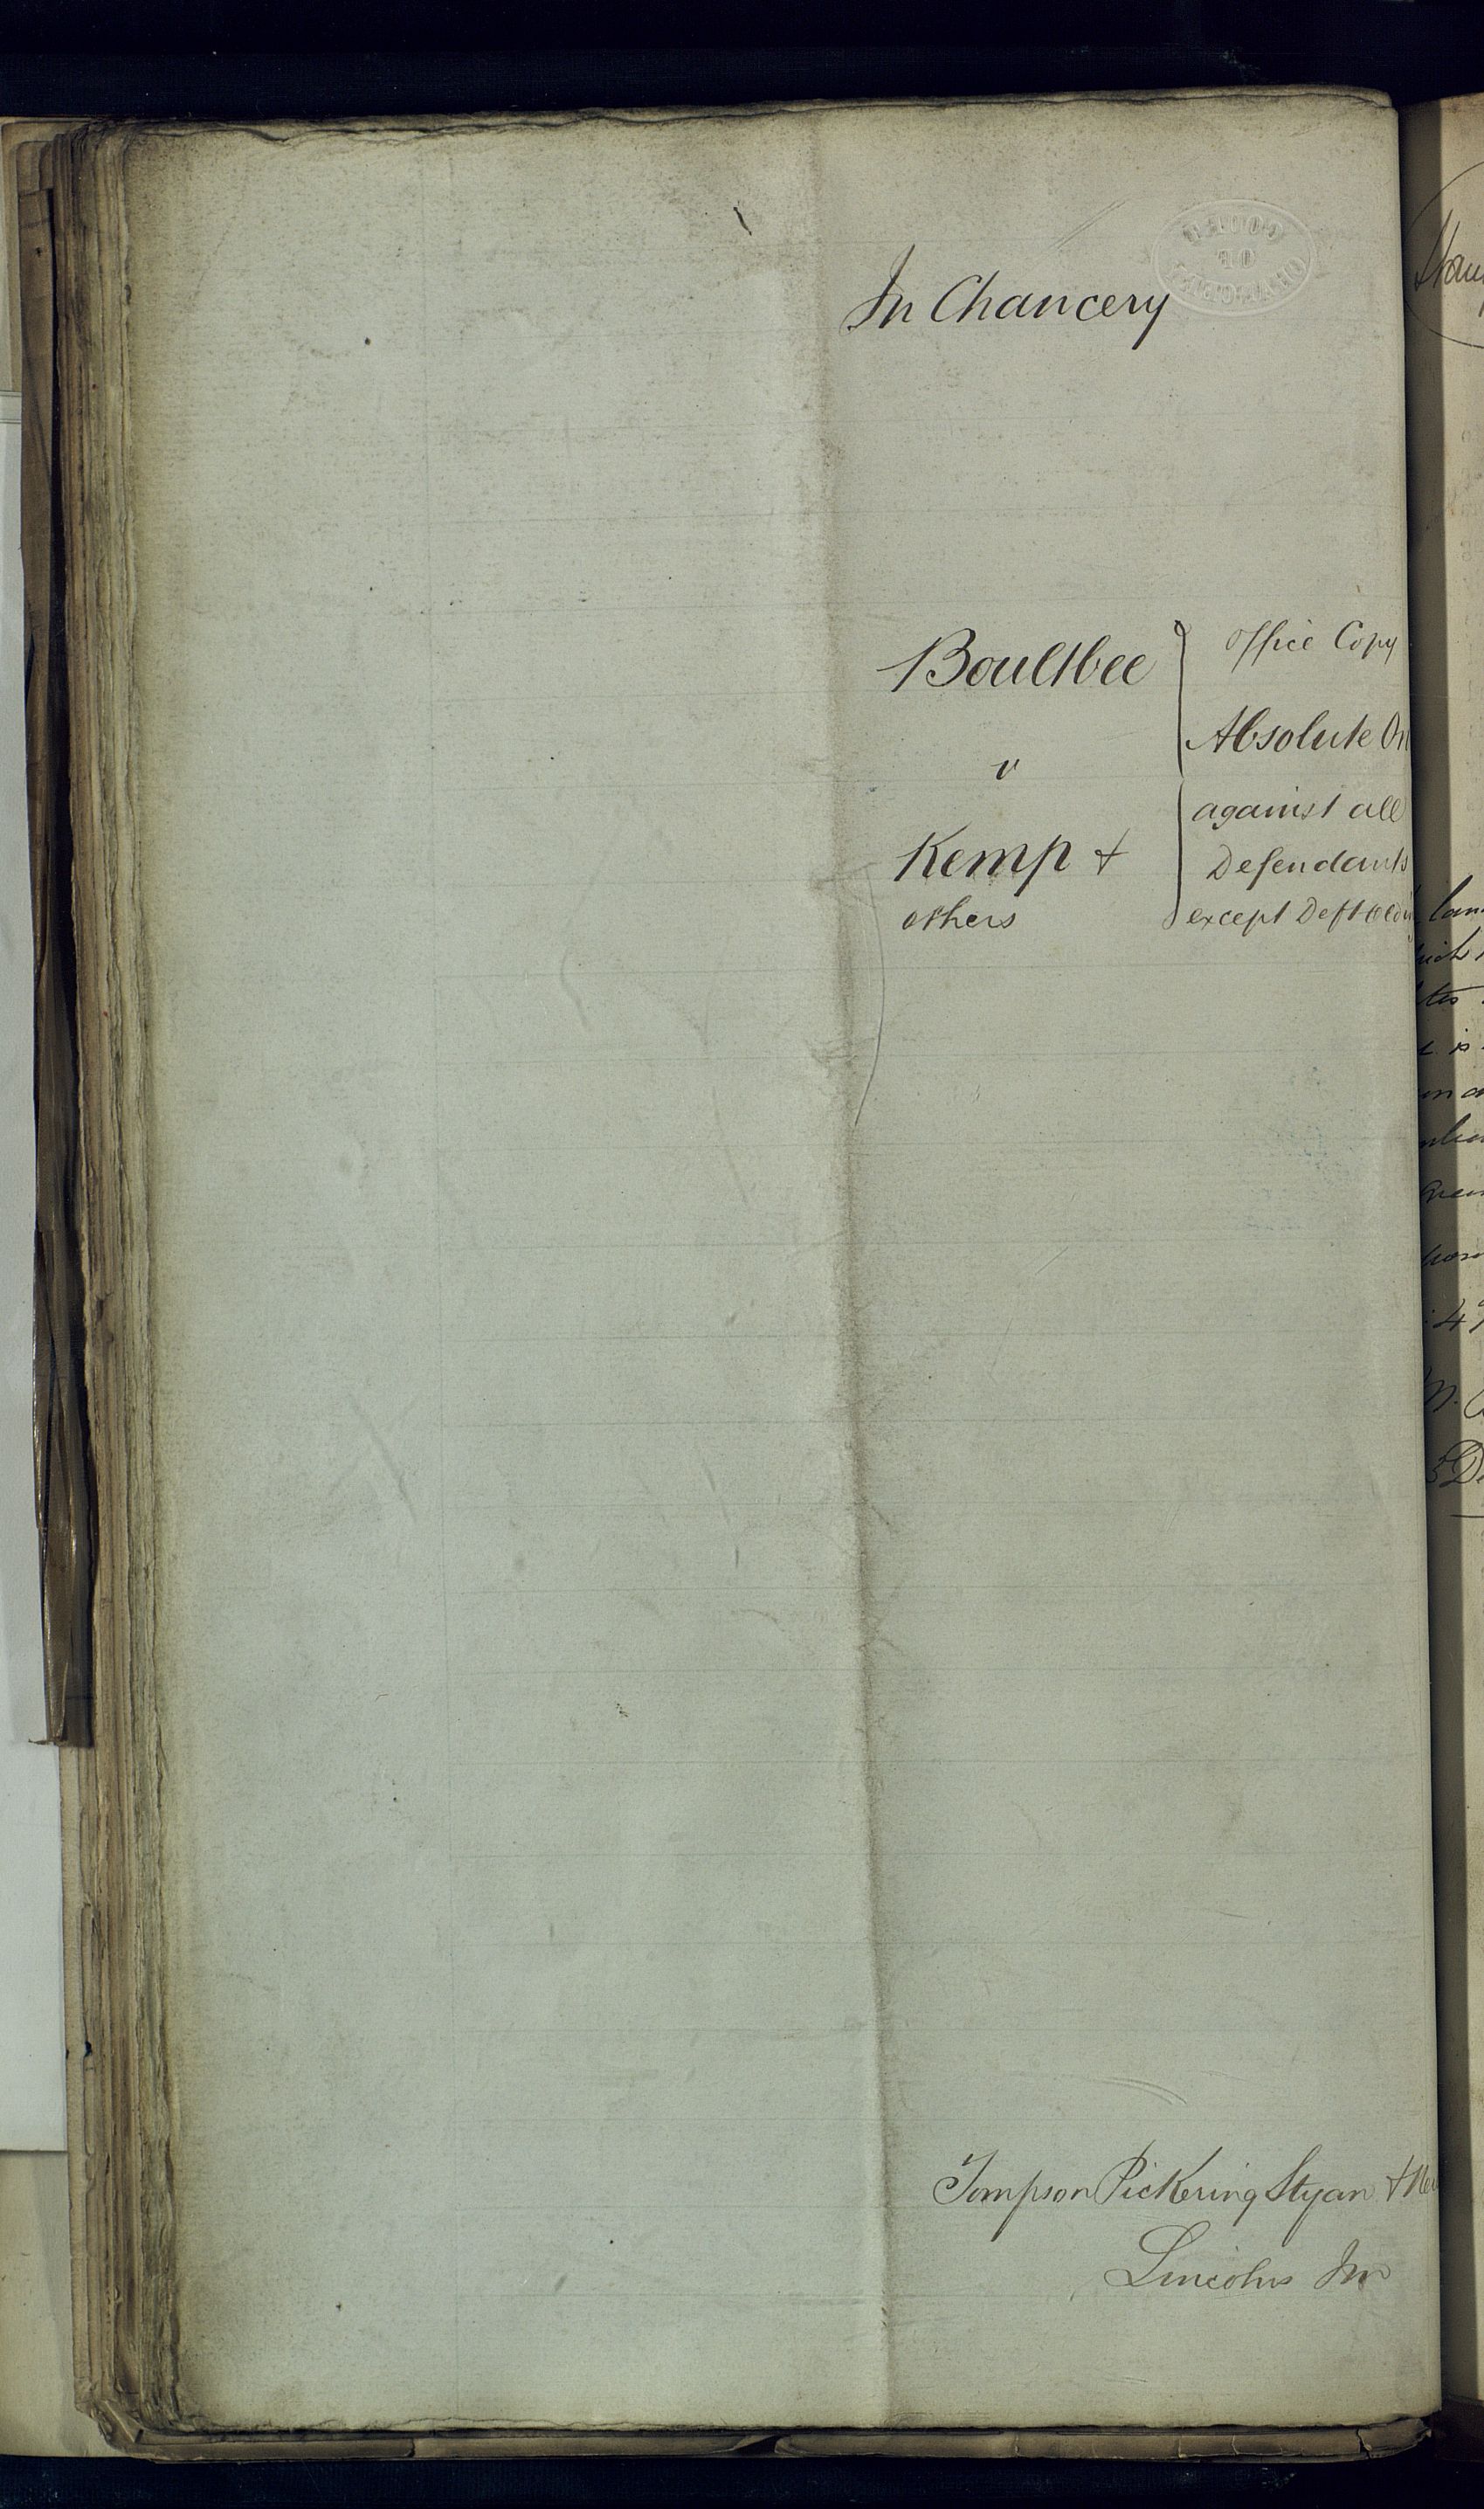 In Chancery
Boultbee
v
Kemp +
others
Office Copy
Absolute
against all
Defendants
except Deft
Tompson Pickering Styan +
Lincolns Inn